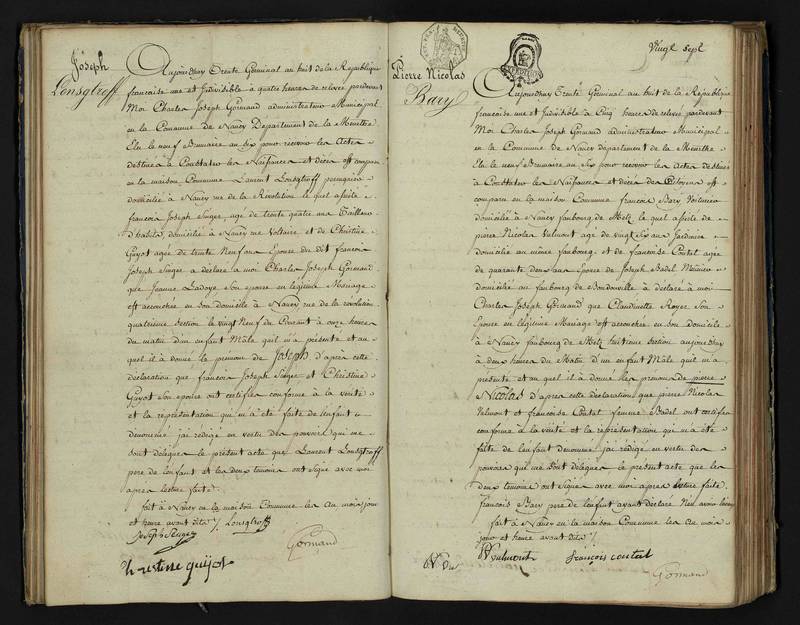 Joseph
Lonsgtroff
Aujourdhuy trente Germinal an huit de la République
francoise une et Indivisible a quatre heures de relevée pardevant
Moi Charles Joseph Gormand administrateur Municipal
en la Commune De Nancy Departement de la Meurthe
Elu le neuf Brumaire an six pour recevoir les Actes
destinés à Constater les Naissances et décès est comparu
en la maison Commune Laurent Lonsgtroff perruquier
domicilié à Nancy rue de la Revolution le quel assisté
françois Joseph Singer, agé de trente quatre ans Tailleur
d'habits, domicilié à Nancy rue Voltaire et de Christine
Guyot agée de trente Neuf ans Epouse du dit francois
Joseph Singer a déclaré à moi Charles Joseph Gormand
que Jeanne Ladoye Son epouse en légitime Mariage
est accouchée en son domicile à Nancy rue de la revolution
quatrieme section le vingt Neuf du Courant à onze heures
du matin d'un enfant Mâle quil m'a présenté et au
quel il à donné le prénom de Joseph. D'après cette
déclaration que francois Joseph Singer et Christine
Guyot son epouse ont certifiés conforme à la vérité
et la représentation qui m'a été faite de lenfant
denommé jai rédigé en vertu des pouvoirs qui me
sont délégués le présent acte que Laurent Lonsgtroff
pere de lenfant et les deux temoins ont signé avec moi
apres lecture faite.
fait à Nancy en la maison Commune les An mois jour
et heure avant dits /. Lonsgtroff
Joseph Senger
Gormand
Christine guijot
Vingt sept
Pierre Nicolas
Bary
Aujourdhuy trente Germinal an huit de la République
francoise une et Indivisible à Cinq heures de relevée pardevant
Moi Charles Joseph Gormand administrateur Municipal
en la Commune de Nancy département de la Meurthe
Elu le neuf Brumaire an six pour recevoir les Actes destinés
à Constater les Naissances et décés des Citoyens est
comparu en la maison Commune francois Bary Voiturier
domicilié à Nancy faubourg de Metz le quel assisté de
pierre Nicolas Vulmont agé de vingt six ans Jardinier
domicilié au même faubourg et de francoise Coutal agée
de quarante deux ans Epouse de Joseph Badel
domicilié au faubourg de Boudonville à déclaré à moi
Charles Joseph Gormand que Claudinette Royer Son
Epouse en légitime Mariage est accouchée en son domicile
à Nancy faubourg de Metz huitieme section aujourdhuy
à deux heures du Matin d'un enfant Mâle quil m'a
présenté et au quel il à donné les prénoms de pierre
Nicolas d'apres cette déclaration que pierre Nicolas
Vulmont et francoise Coutal femme Badel ont certifiés
conforme à la vérité et la représentation qui m'a été
faite de lenfant denommé jai rédigé en vertu des
pouvoirs qui me sont délégués le présent acte que les
deux temoins ont signés avec moi apres lecture faite.
francois Bary pere de lenfant ayant déclaré
fait à Nancy en la maison Commune les An mois
jour et heure avant dits /.
Vulmont françois coutal
Gormand